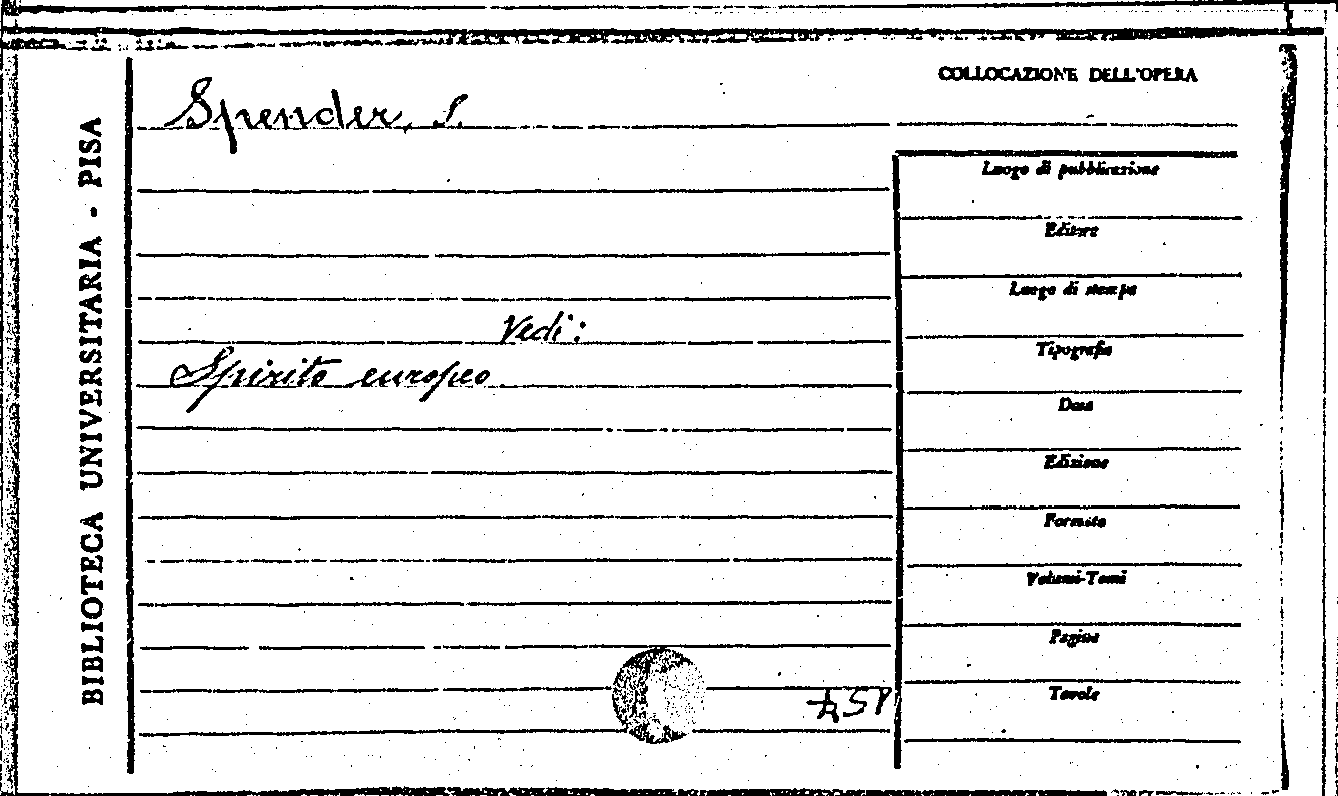 BIBLIOTECA UNIVERSITARIA - PISA
Spender, S.
COLLOCAZIONE DELL'OPERA
Luogo di pubblicazione
Editore
Luogo di stampa
Vedi:
Tipografia
Spirito europeo
Data
Edizione
Formato
Volumi-Tomi
Pagine
Tavole